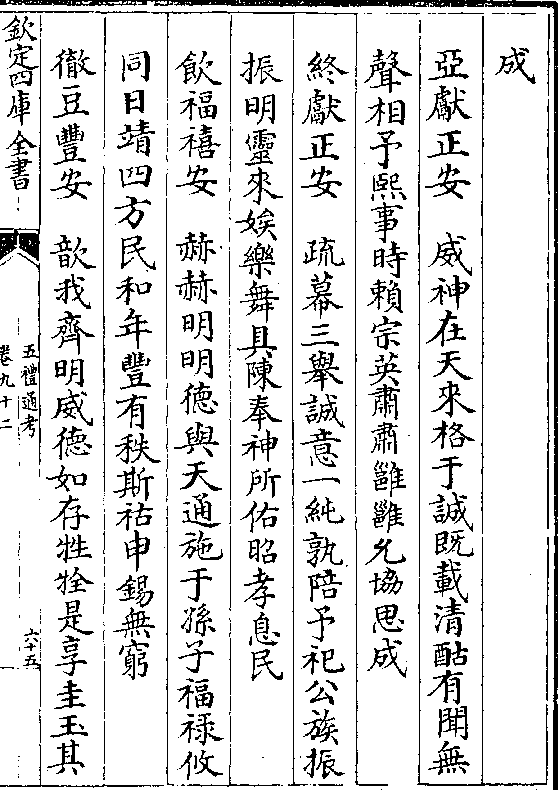 成
亞獻正安　威神在天來格于誠既載清酤有聞無
聲相予熙事時賴宗英肅肅雝雝允協思成
終獻正安　疏冪三舉誠意一純孰陪予祀公族振
振明靈來娭樂舞具陳奉神所佑昭孝息民
飲福禧安　赫赫明明德與天通施于孫子福禄攸
同日靖四方民和年豐有秩斯祜申錫無窮
徹豆豐安　歆我齊明威德如存牲牷是享圭玉其
欽定四庫全書
五禮通考
卷九十二
六十五